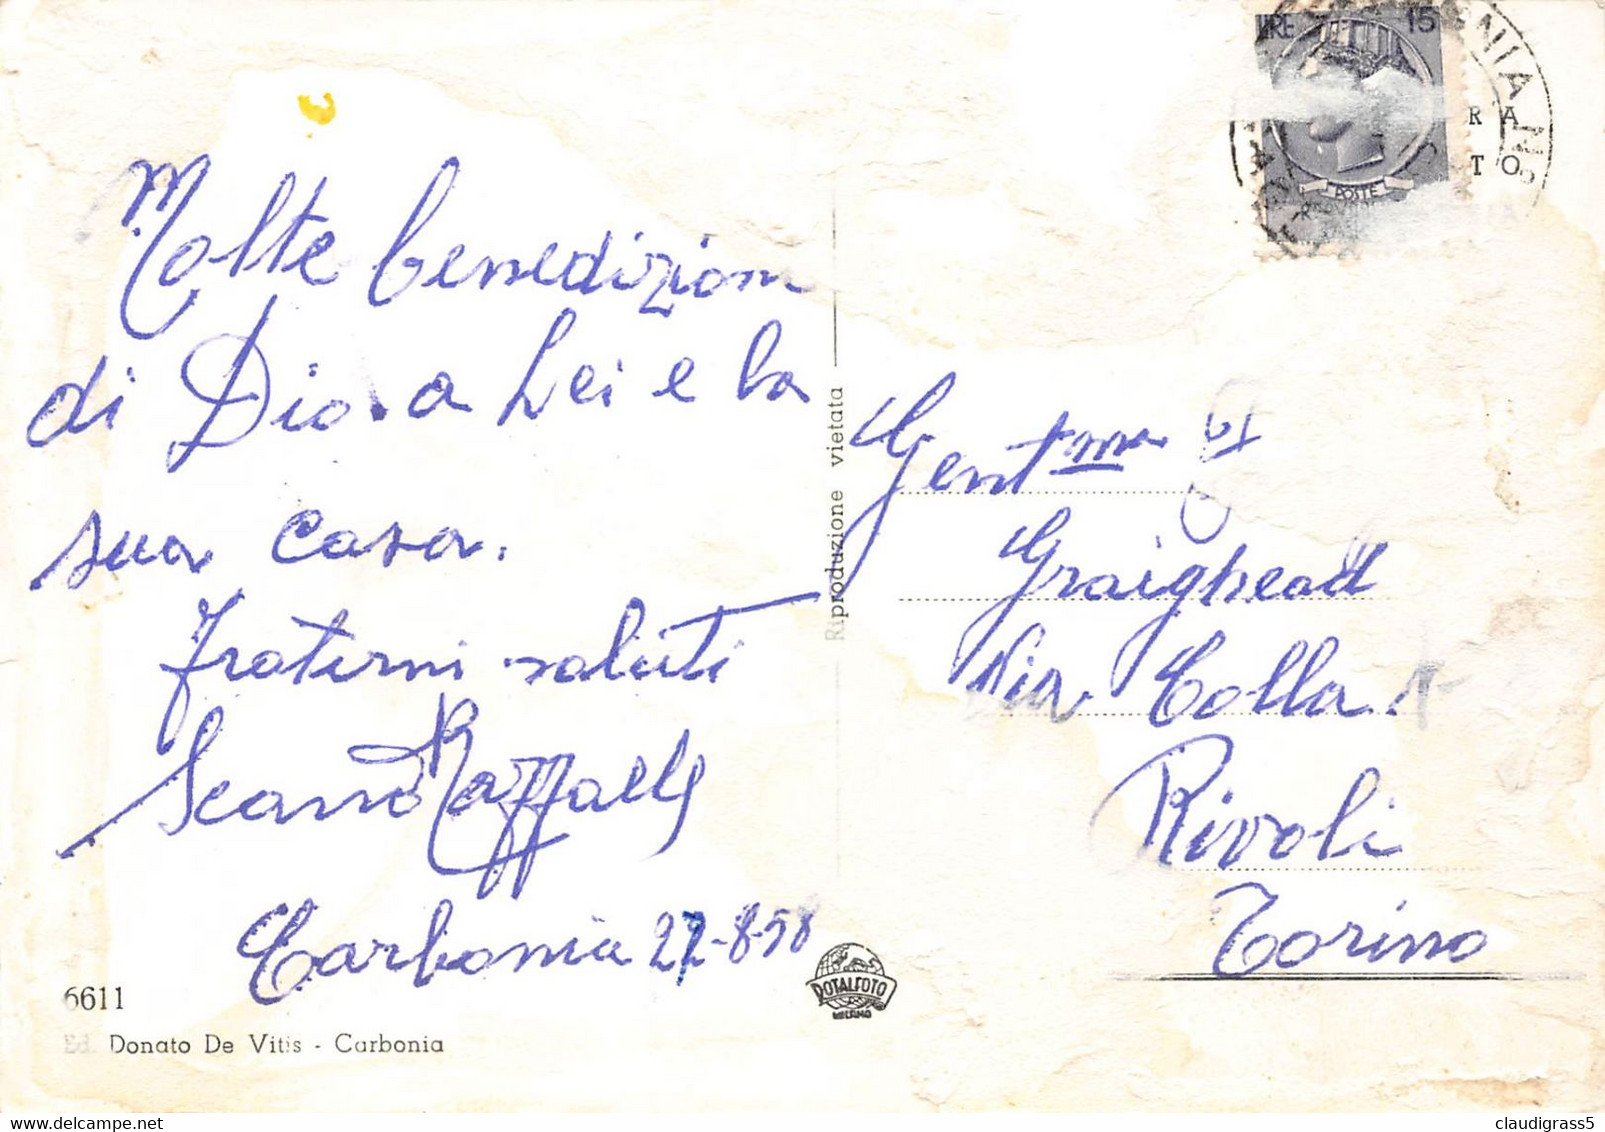 Molte benedizioni
di Dio a Lei e la
sua casa.
Fraterni saluti
Scano Raffaele
Carbonia 27-8-58
6611
Ed. Donato De Vitis - Carbonia
Riproduzione vietata
ROTALFOTO
MILANO
LIRE 15
POSTE
RA
TO
Gentma
Graighead
Via Colla 1
Rivoli
Torino
claudigrass5